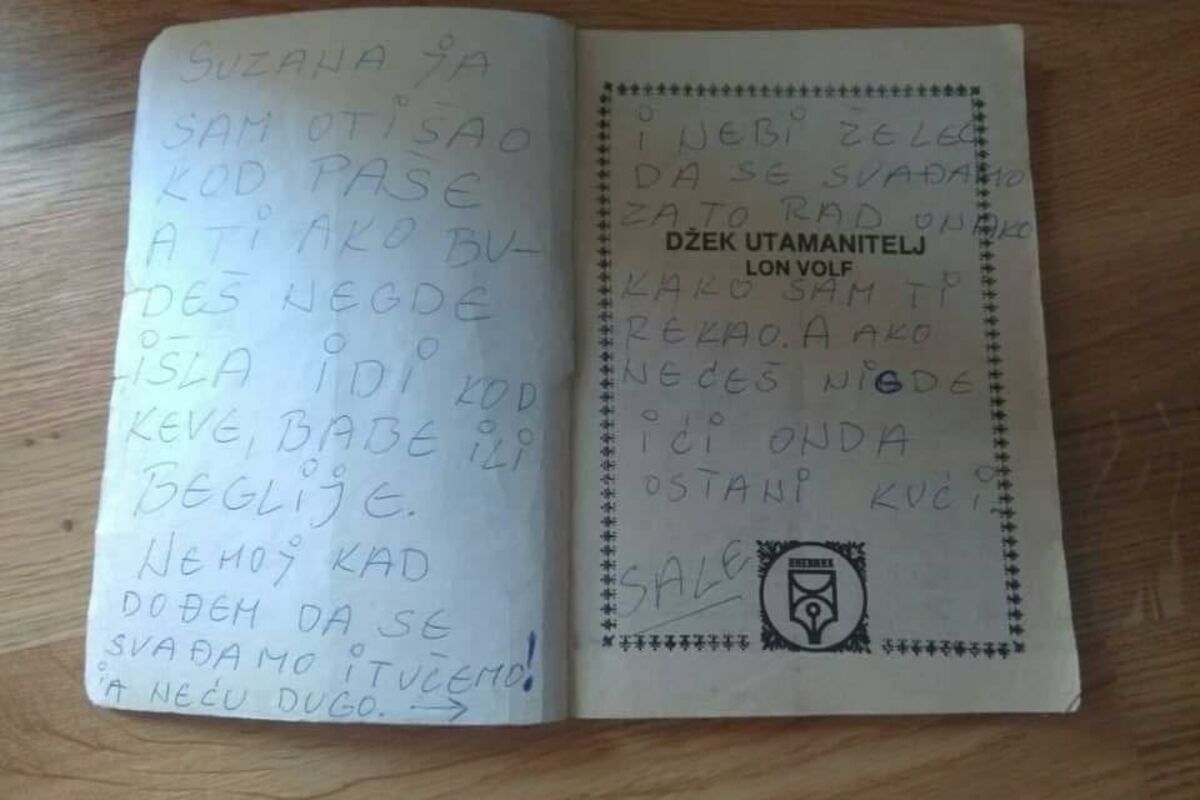 SUZANA JA
SAM OTIŠAO
KOD PAŠE
A TI AKO BU-
DEŠ NEGDE
IŠLA IDI KOD
KEVE, BABE ILI
BEGLIJE.
NEMOJ KAD
DOĐEM DA SE
SVAĐAMO I TUČEMO!
JA NEĆU DUGO. →
I NEBI ŽELEO
DA SE SVAĐAMO
ZATO RAD ONAKO
DŽEK UTAMANITELJ
LON VOLF
KAKO SAM TI
REKAO. A AKO
NEĆEŠ NIGDE
IĆI ONDA
OSTANI KUĆI
SALE